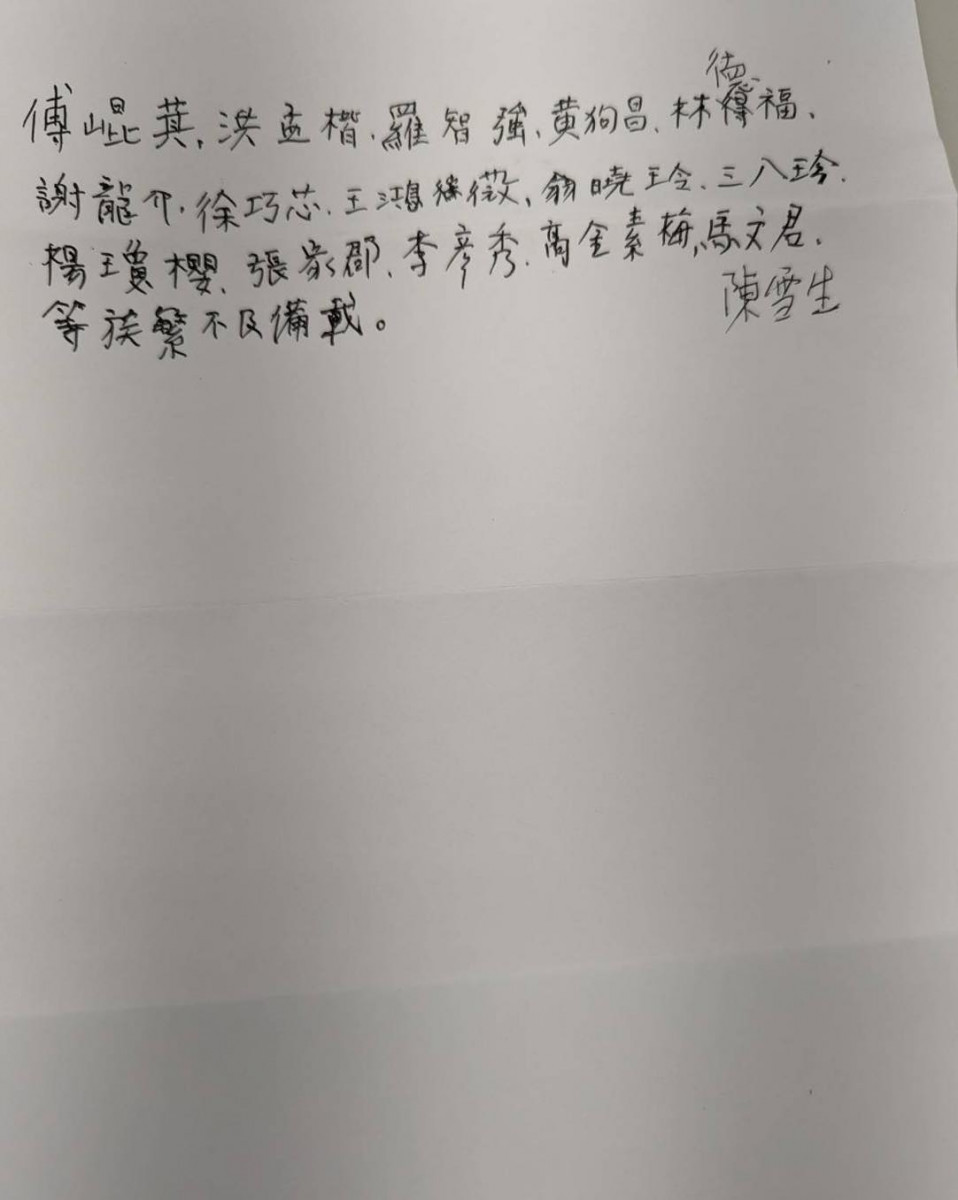 德
傅崐萁, 洪孟楷、羅智強、黃狗昌、林福、
謝龍介、徐巧芯、王鴻薇、翁曉玲、三八珍、
楊瓊櫻、張家郡、李彥秀、高金素梅、馬文君、
陳雪生
等族繁不及備載。